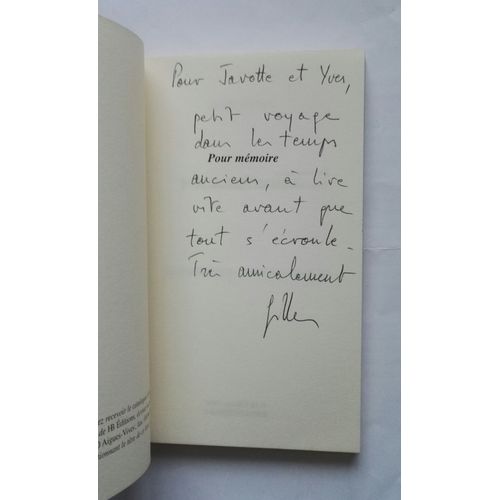 Pour Javotte et Yves,
petit voyage
dans les temps
Pour mémoire
anciens, à lire
vite avant que
tout s'écroule.
Très amicalement
Gilles
ez recevoir le catalogue
de HB Éditions, il vous
0 Aigues-Vives,
tionnant le titre de ce